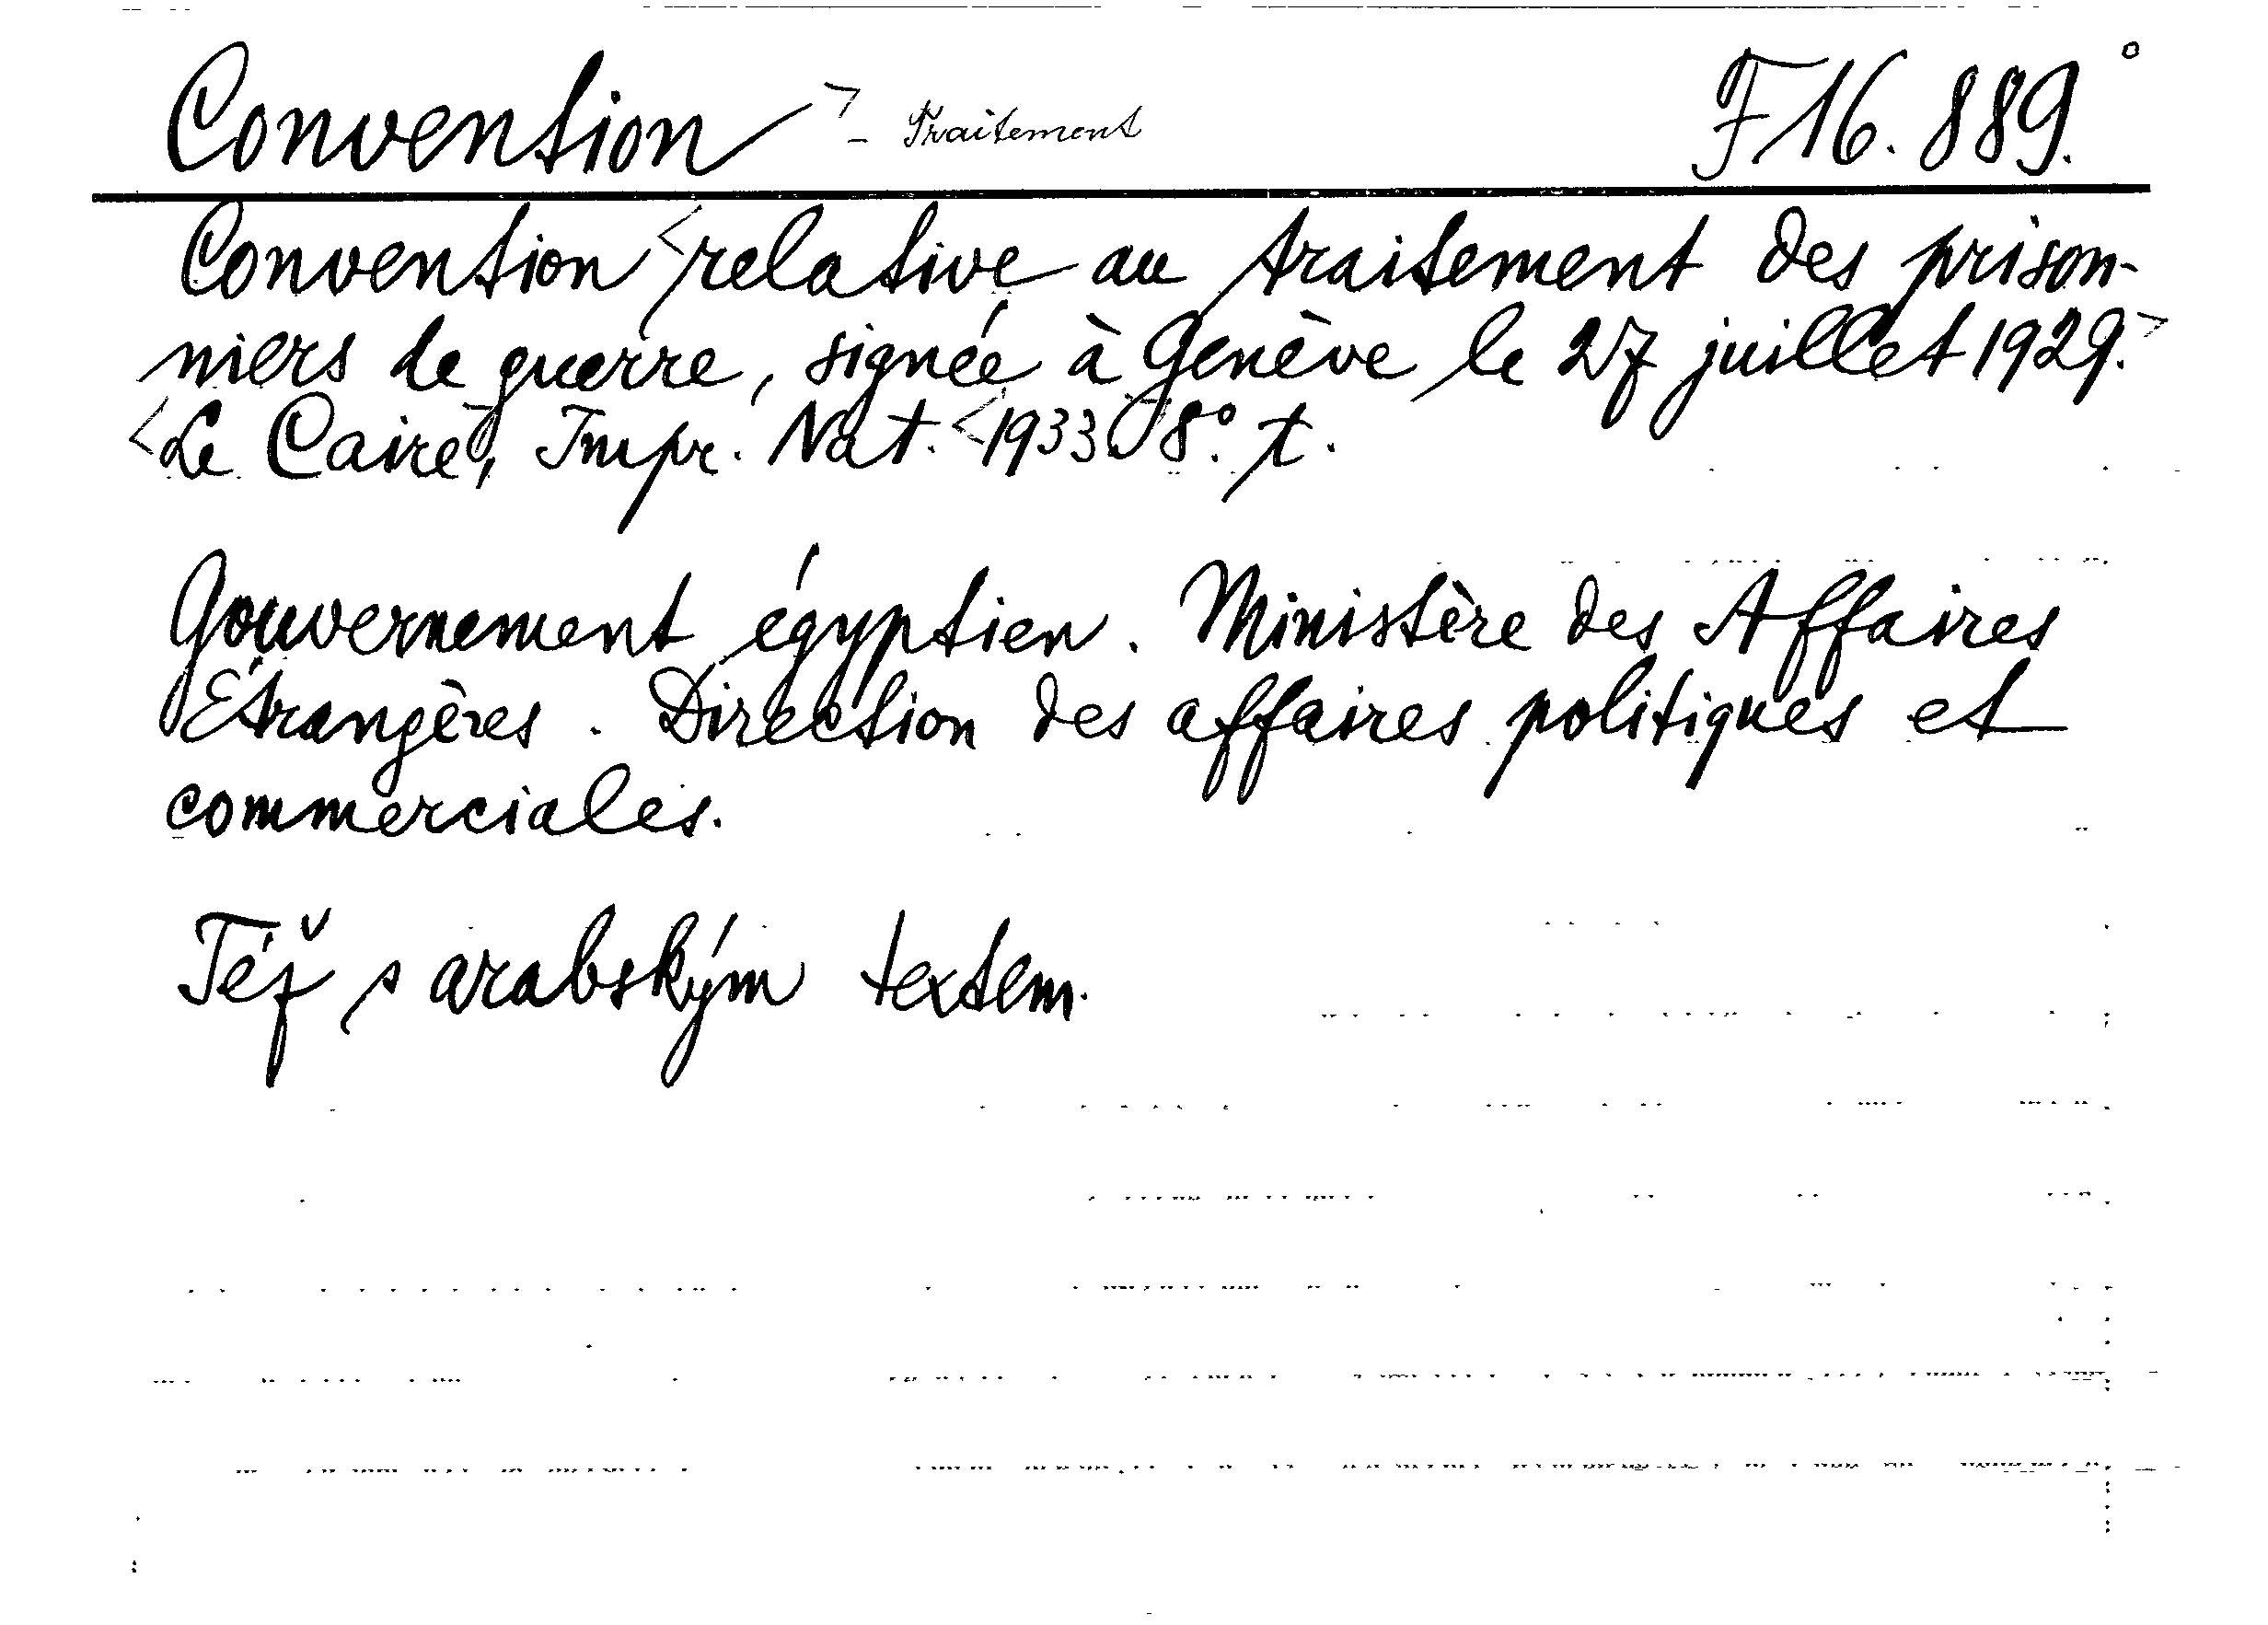 Convention - Traitement F 16.889.°
Convention relative au traitement des prison-
niers de guerre, signée à Genève le 27 juillet 1929.
Le Caire, Impr. Nat. 1933. 8°. t.
Gouvernement égyptien. Ministère des Affaires
Etrangères. Direction des affaires politiques et
commerciales.
Též s arabským textem.